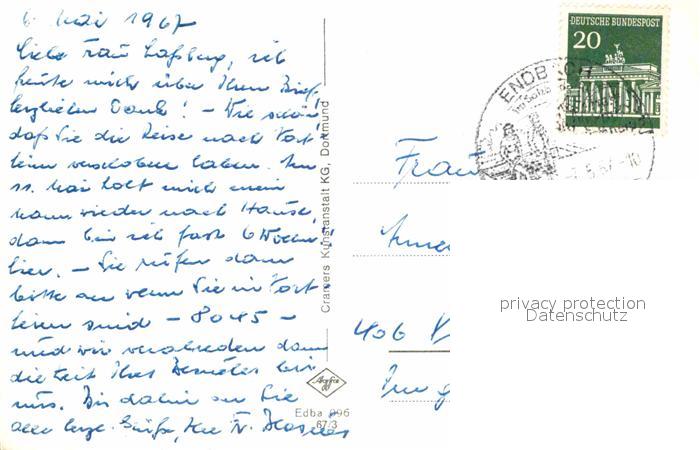 6. Mai 1967
Liebe Frau Laßberg, ich
freute mich über Ihren Brief,
herzlichen Dank! – Wie schön
daß Sie die Reise nach Port
heim verschoben haben. Am
11. Mai holt mich mein
Mann wieder nach Hause,
dann bin ich fast 6 Wochen
hier. – Sie rufen dann
bitte an wenn Sie in Port
heim sind – 8045 –
und wir verabreden dann
die Zeit Ihres Besuches bei
uns. Bis dahin an Sie
alle herzl. Grüße, Ihre
Cramers Kunstanstalt KG, Dortmund
Agfa
Edba 096
67/3
DEUTSCHE BUNDESPOST
20
ENDBACH
-7.5.67-10
Frau
406
privacy protection
Datenschutz